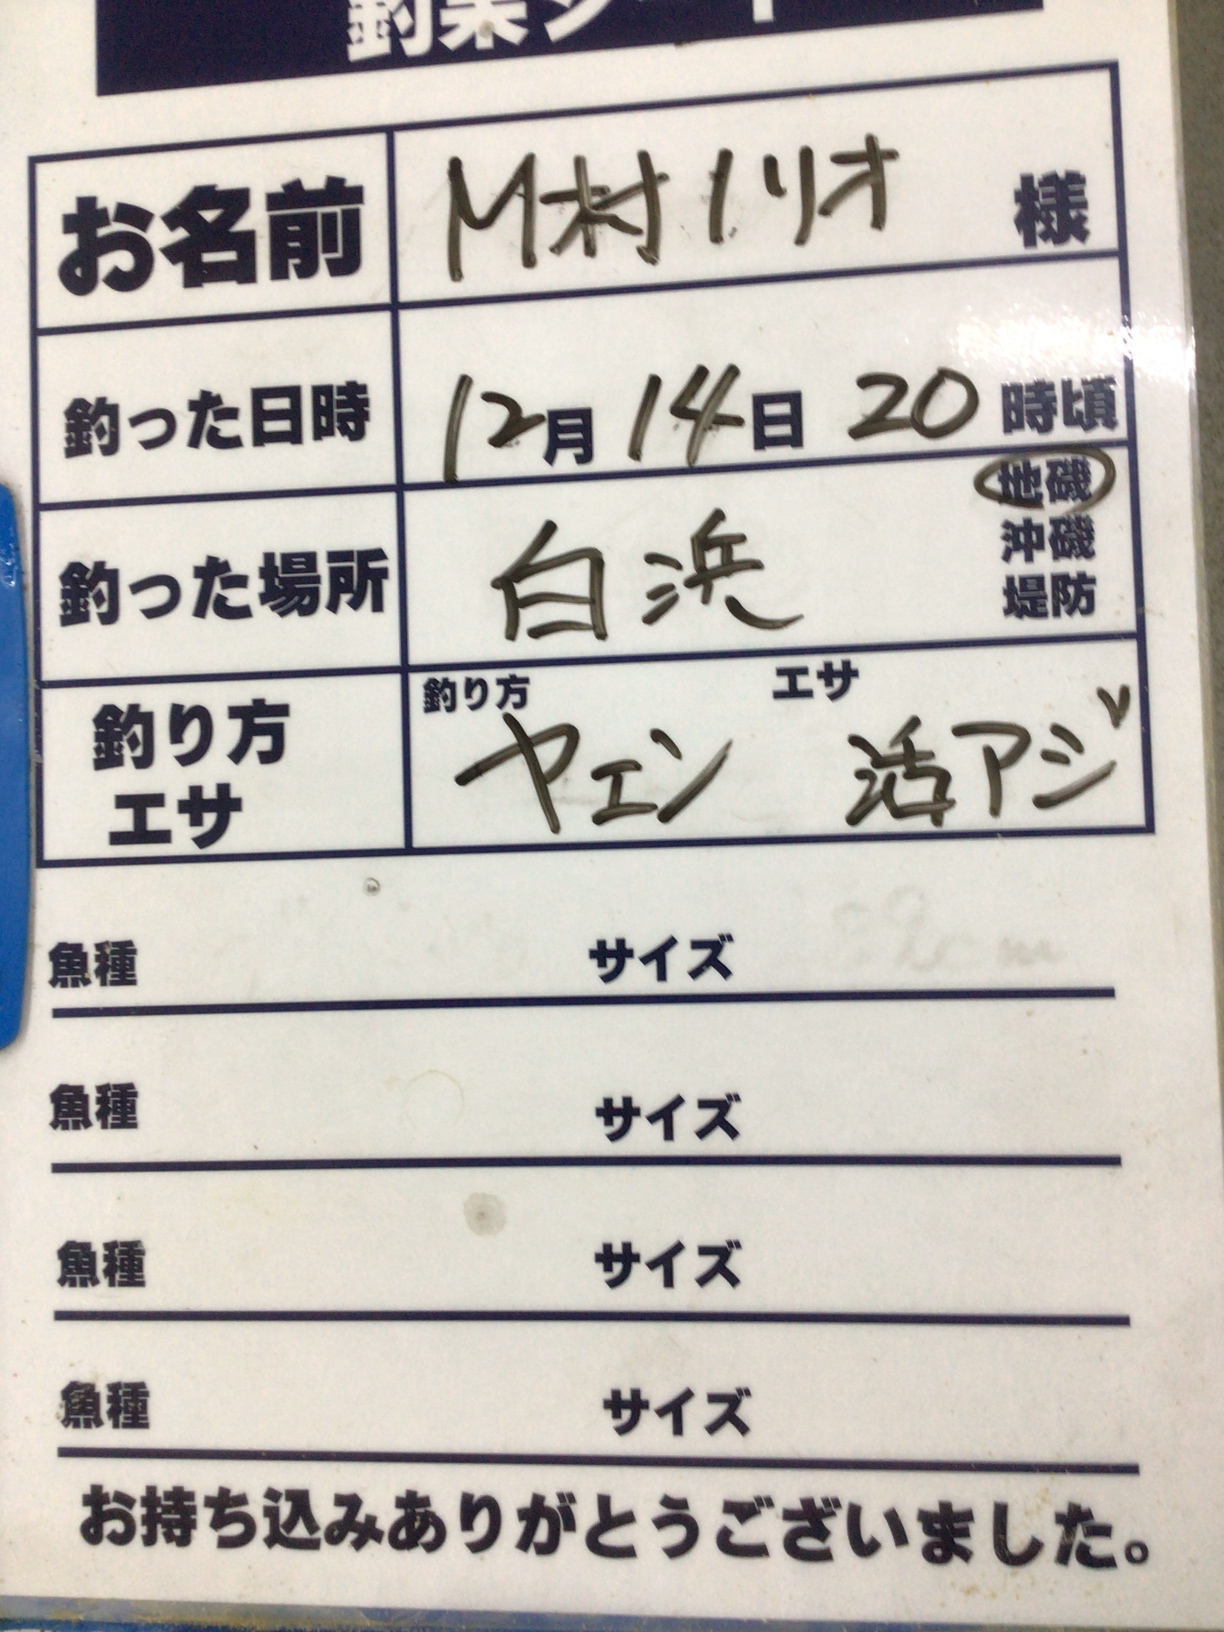 釣果シート
お名前 M村ノリオ 様
釣った日時 12月14日 20時頃
釣った場所 白浜 地磯
沖磯
堤防
釣り方 エサ
釣り方 ヤエン 活アジ
エサ
魚種 サイズ
魚種 サイズ
魚種 サイズ
魚種 サイズ
お持ち込みありがとうございました。